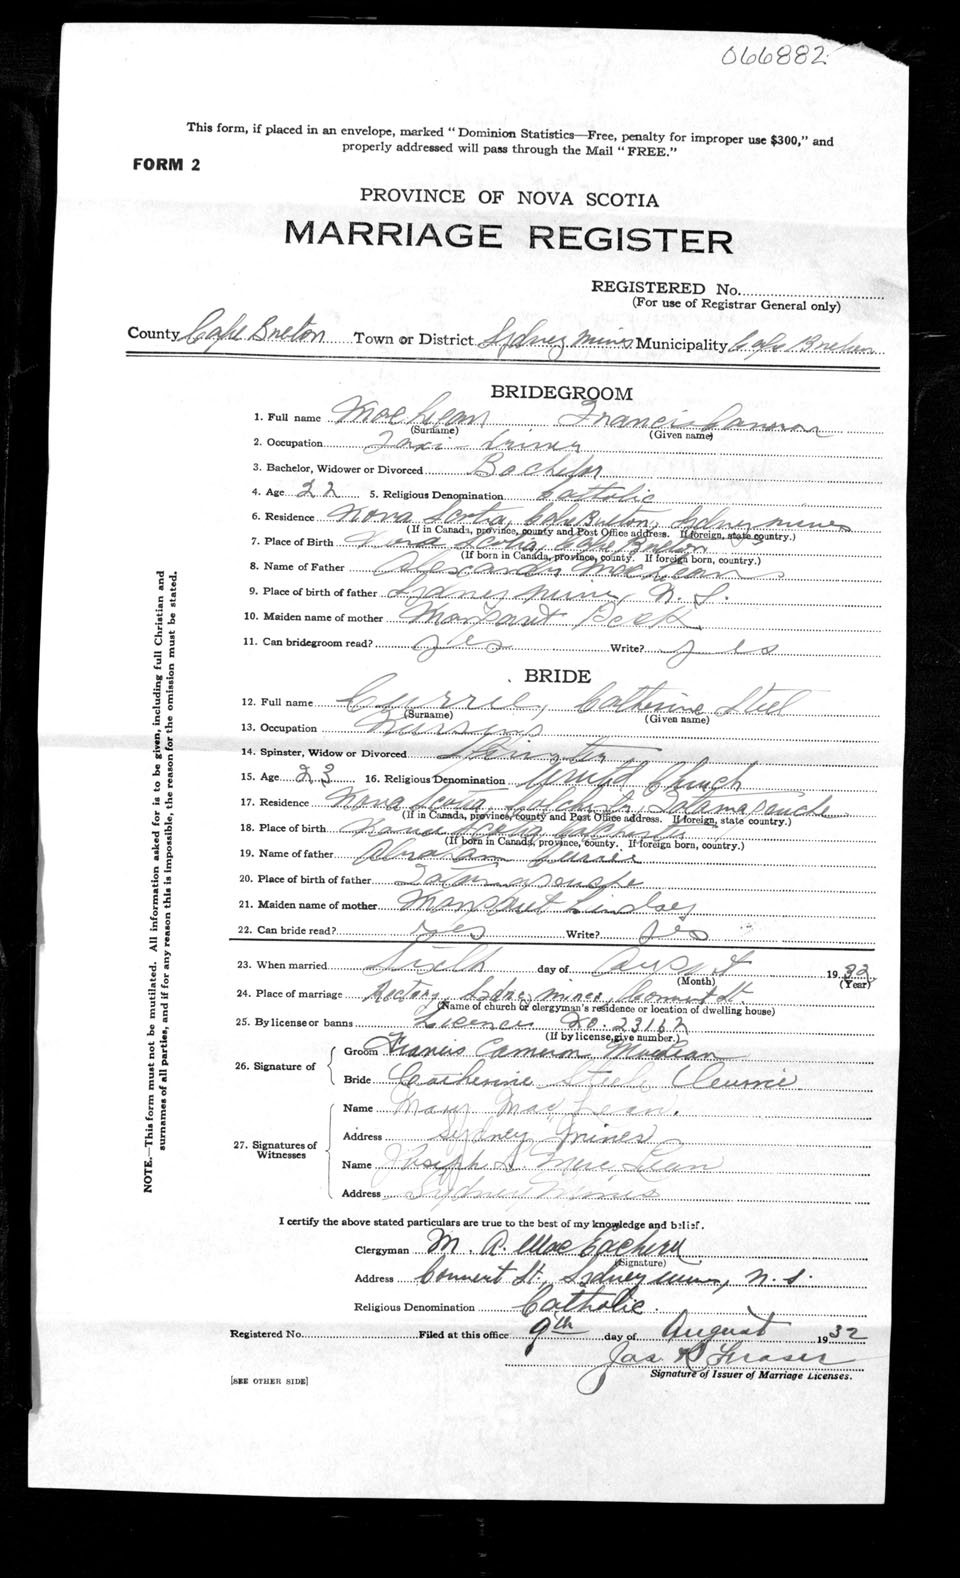 066882
This form, if placed in an envelope, marked "Dominion Statistics—Free, penalty for improper use $300," and
properly addressed will pass through the Mail "FREE."
FORM 2
PROVINCE OF NOVA SCOTIA
MARRIAGE REGISTER
REGISTERED No.
(For use of Registrar General only)
County Cape Breton Town or District Sydney Mines Municipality Cape Breton
BRIDEGROOM
1. Full name MacLean Francis Cameron
(Surname) (Given name)
2. Occupation Taxi driver
3. Bachelor, Widower or Divorced Bachelor
4. Age 22 5. Religious Denomination Catholic
6. Residence Nova Scotia, Cape Breton, Sydney Mines
(If in Canada, province, county and Post Office address. If foreign, state country.)
7. Place of Birth Nova Scotia, Cape Breton
(If born in Canada, province, county. If foreign born, country.)
8. Name of Father Alexander MacLean
9. Place of birth of father Sydney Mines, N. S.
10. Maiden name of mother Margaret Peck
11. Can bridegroom read? yes Write? yes
BRIDE
12. Full name Currie, Catherine Steel
(Surname) (Given name)
13. Occupation Nursing
14. Spinster, Widow or Divorced Spinster
15. Age 23 16. Religious Denomination United Church
17. Residence Nova Scotia, Colchester, Tatamagouche
(If in Canada, province, county and Post Office address. If foreign, state country.)
18. Place of birth Nova Scotia Colchester
(If born in Canada, province, county. If foreign born, country.)
19. Name of father Abraham Currie
20. Place of birth of father Tatamagouche
21. Maiden name of mother Margaret Lindsey
22. Can bride read? yes Write? yes
23. When married Sixth day of August 1932
(Month) (Year)
24. Place of marriage Rectory Sydney Mines, Convent St.
(Name of church or clergyman's residence or location of dwelling house)
25. By license or banns License No. 23162
(If by license, give number.)
26. Signature of
Groom Francis Cameron MacLean
Bride Catherine Steel Currie
27. Signatures of Witnesses
Name Mary MacLean.
Address Sydney Mines
Name Joseph S. MacLean
Address Sydney Mines
I certify the above stated particulars are true to the best of my knowledge and belief.
Clergyman M. A. MacEachern
(Signature)
Address Convent St., Sydney Mines, N. S.
Religious Denomination Catholic.
Registered No. Filed at this office 9th day of August 1932
Jas R Fraser
Signature of Issuer of Marriage Licenses.
[SEE OTHER SIDE]
NOTE.—This form must not be mutilated. All information asked for is to be given, including full Christian and
surnames of all parties, and if for any reason this is impossible, the reason for the omission must be stated.